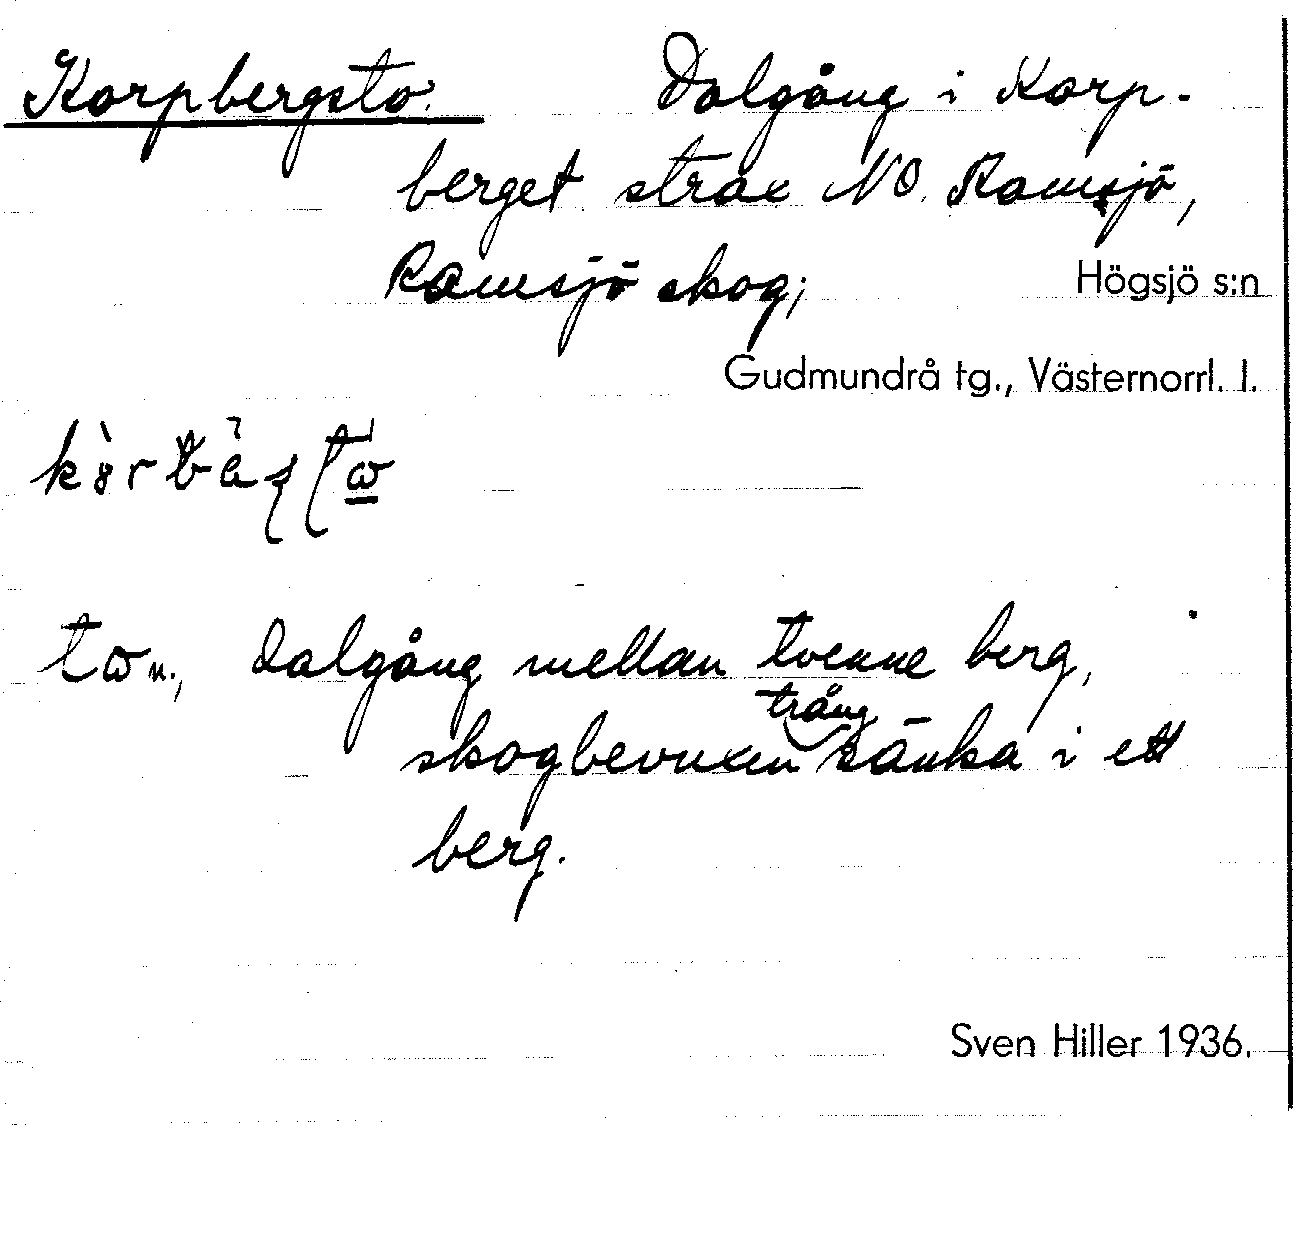 Korpbergsto. Dalgång i Korp-
berget strax NO. Ramsjö,
Ramsjö skog; Högsjö s:n
Gudmundrå tg., Västernorrl. l.
n., dalgång mellan tvenne berg,
trång
skogbevuxen sänka i ett
berg.
Sven Hiller 1936.